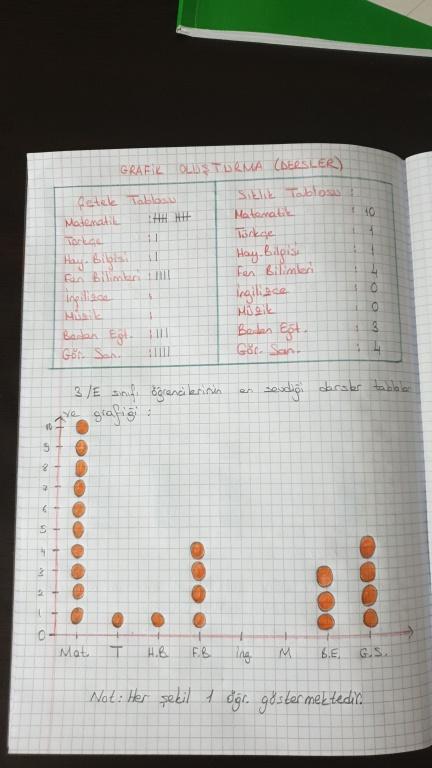 GRAFİK OLUŞTURMA (DERSLER)
Çetele Tablosu
Matematik : 卌 卌
Türkçe : |
Hay. Bilgisi : |
Fen Bilimleri : ||||
İngilizce :
Müzik :
Beden Eğt. : |||
Gör. San. : ||||
Sıklık Tablosu :
Matematik : 10
Türkçe : 1
Hay. Bilgisi : 1
Fen Bilimleri : 4
İngilizce : 0
Müzik : 0
Beden Eğt. : 3
Gör. San. : 4
3/E sınıfı öğrencilerinin en sevdiği dersler tabloları
ve grafiği :
10
9
8
7
6
5
4
3
2
1
0
Mat. T H.B F.B İng M B.E. G.S.
Not: Her şekil 1 öğr. göstermektedir.